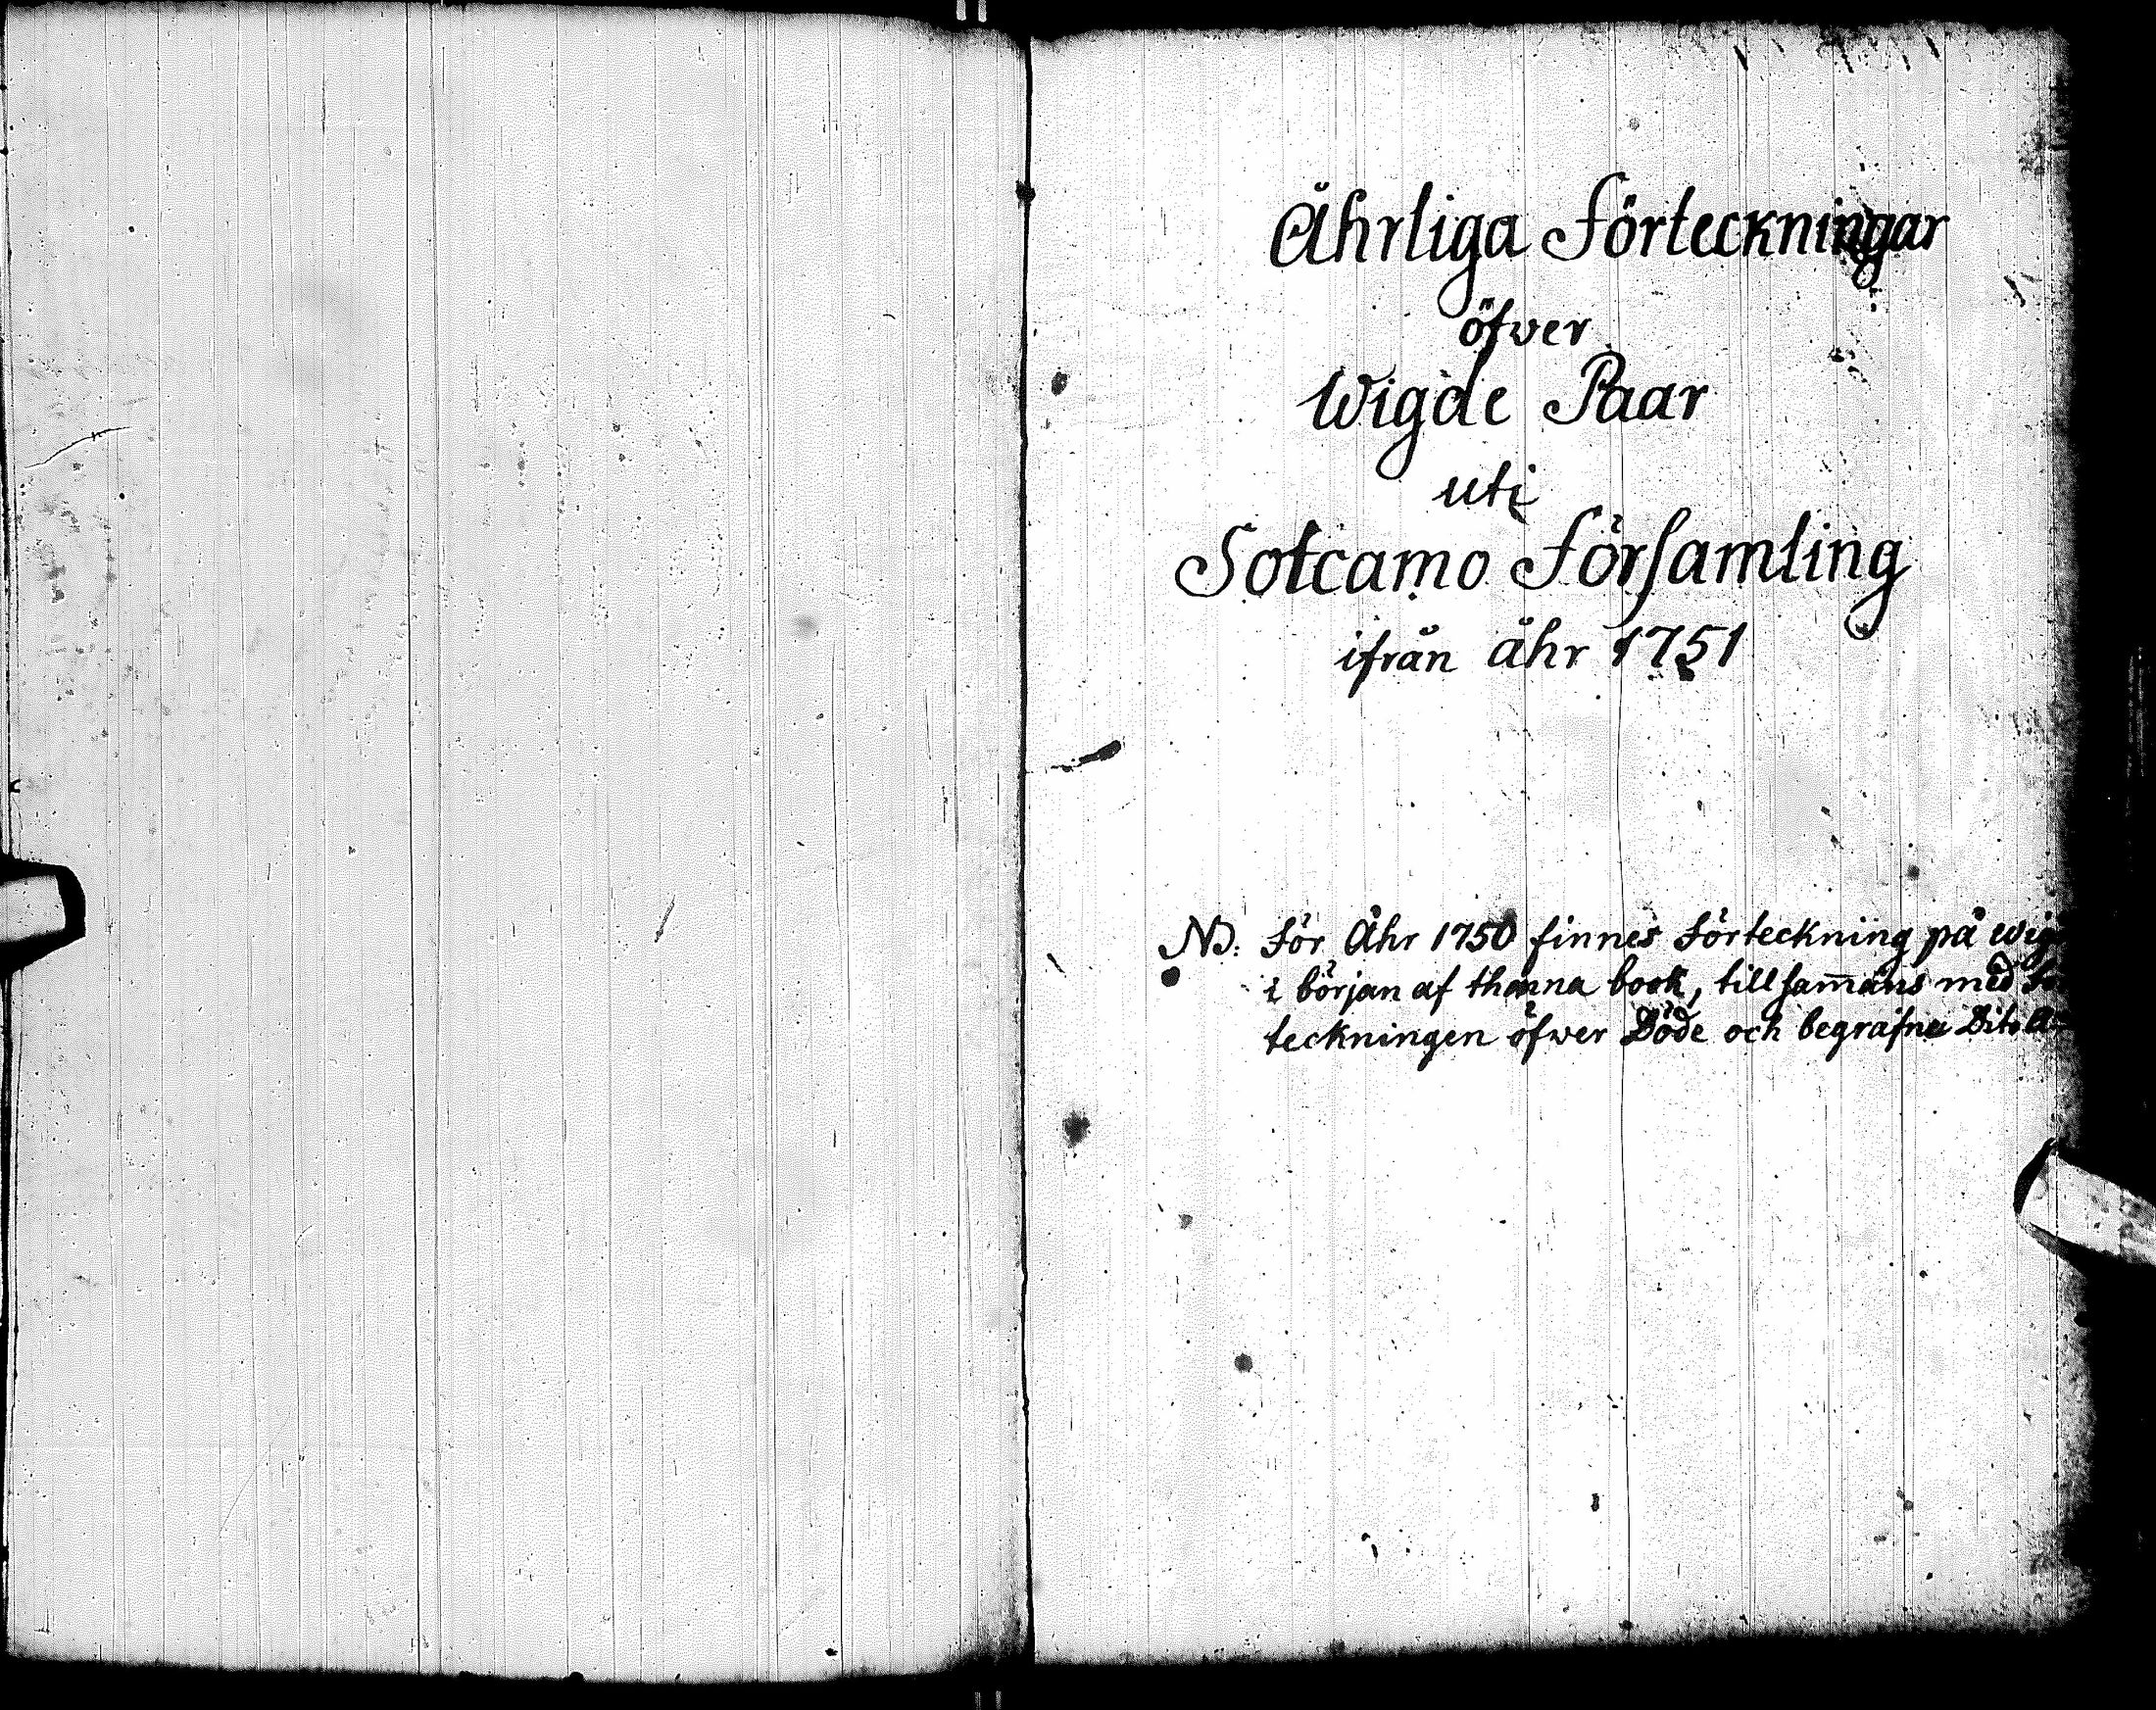 Åhrliga Förteckningar
öfwer
Wigde Paar
uti
Sotcamo Församling
ifrån åhr 1751
NB: För Åhr 1750 finnes Förteckning på
i början af thenna book, tillsam̅ans med
teckningen öfwer Döde och begrafne Dito